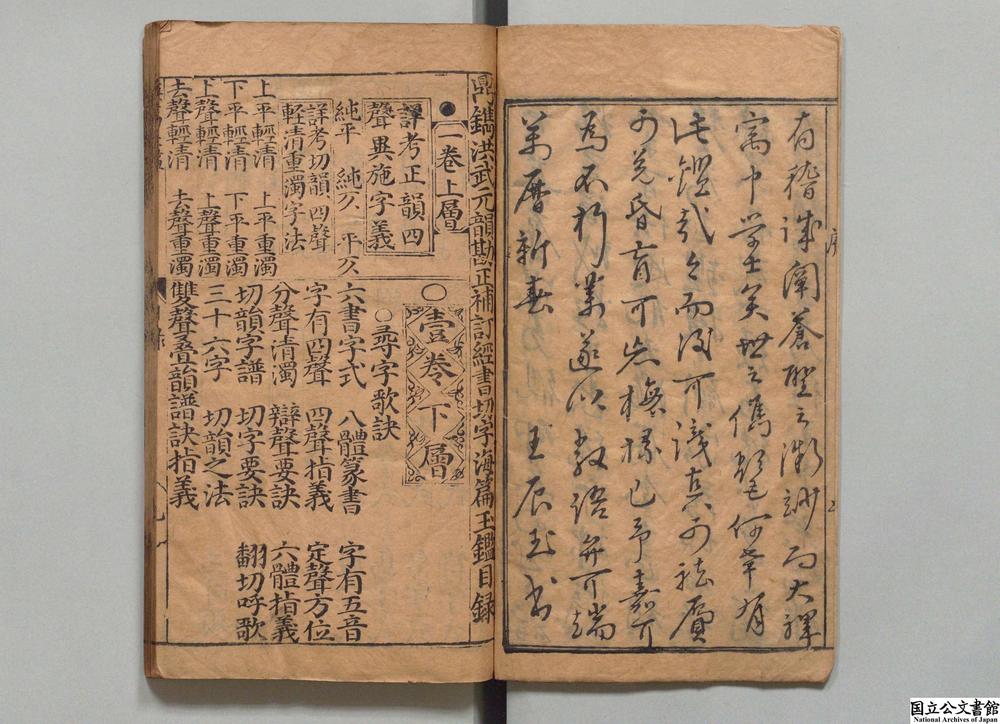 序
有稽誠闡蒼聖之微妙而大禆
寓中学士矣世之儁髦何幸有
此鑑哉之而後可識真可祛贗
可覓昏盲可
為不朽業遂以数语弁可端
萬曆新春
鼎鐫洪武元韻勘正補訂經書切字海篇玉鑑目錄
●一卷上層
詳考正韻四
聲異施字義
純平 純仄 平仄
詳考切韻四聲
輕清重濁字法
上平輕清 上平重濁
下平輕清 下平重濁
上聲輕清 上聲重濁
去聲輕清 去聲重濁
○壹卷下層
○尋字歌訣
六書字式 八體篆書 字有五音
字有四聲 四聲指義 定聲方位
分聲清濁 辯聲要訣 六體指義
切韻字譜 切字要訣 翻切呼歌
三十六字 切韻之法
雙聲疊韻譜訣指義
国立公文書館
National Archives of Japan